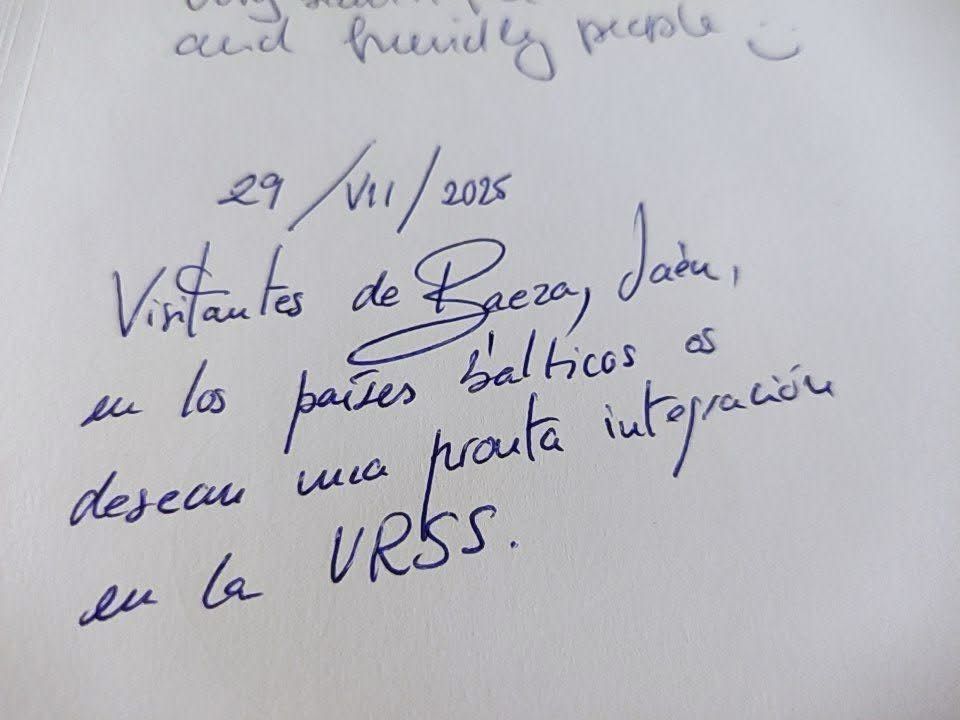 and friendly people
29/VII/2025
Visitantes de Baeza, Jaén,
en los países bálticos os
desean una pronta integración
en la URSS.